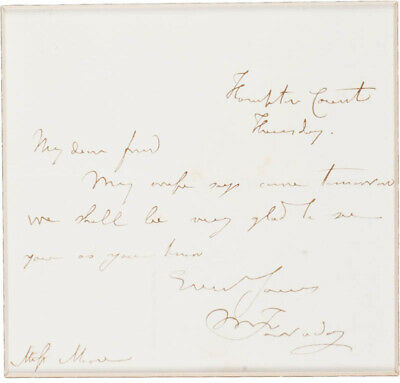 Hampton Court
Thursday.
My dear friend
My wife says come tomorrow
we shall be very glad to see
you as you know
Ever Yours
M Faraday
Miss Moore